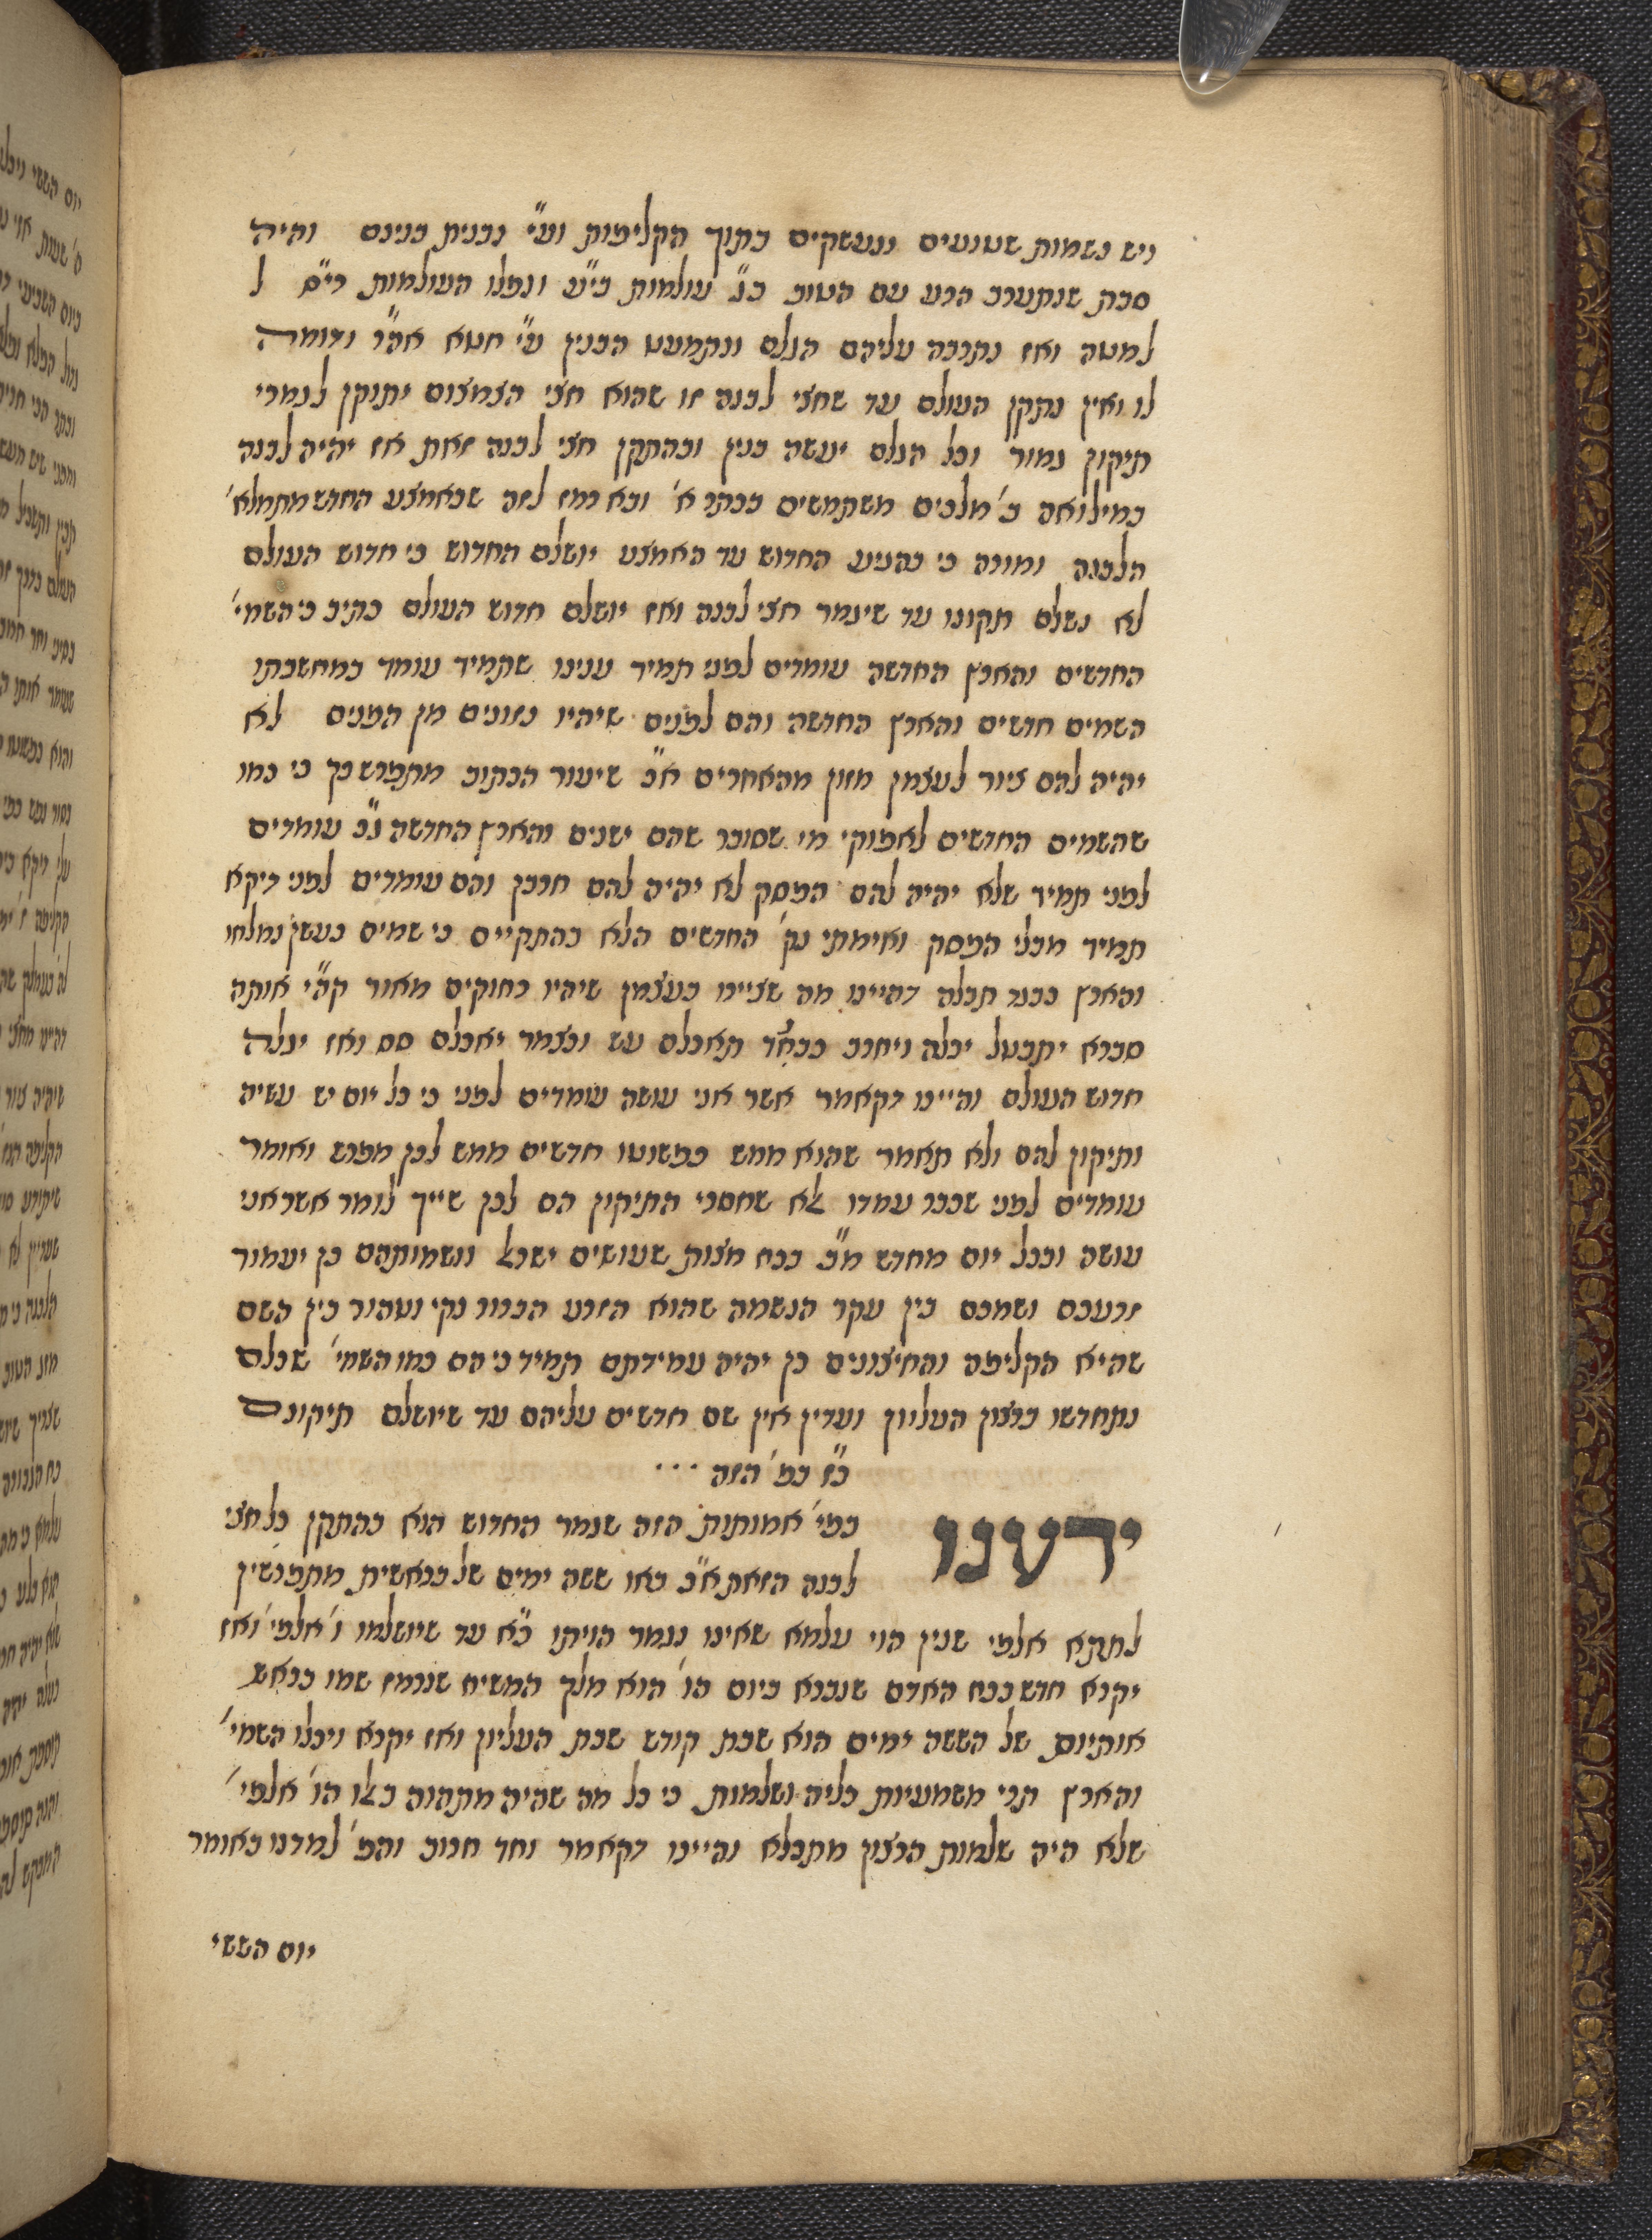 ויש נשמות שטועים ונעשקים בתוך הקליפות וע״י נבנית בנינם והיה
סבת שנתערב הרע עם הטוב בג׳ עולמות בי״ע ונפלו העולמות די״ם ל
למטה ואז נתרבה עליהם הגלם ונתמעט הבנין ע״י חטא אה״ר ודומה
לו ואין נתקן העולם עד שחצי לבנה זו שהוא חצי הצמצום יתוקן לגמרי
תיקון גמור וכל הגלם יעשה בנין ובהתקן חצי לבנה זאת אז יהיה לבנה
במילואה ב׳ מלכים משתמשים בכתר א׳ ובא רמז לזה שבאמצע החדש מתמלא׳
הלבנה ומורה כי בהגיע החדוש עד האמצע יושלם החדוש כי חדוש העולם
לא נשלם תקונו עד שיגמר חצי לבנה ואז יושלם חדוש העולם כתיב כי השמי׳
החדשים והארץ החדשה עומדים לפני תמיד ענינו שתמיד עומד במחשבתו
השמים חדשים והארץ החדשה והם לפנים שיהיו נזונים מן הפנים לא
יהיה להם ציור לעצמן מזון מהאחרים א״כ שיעור הכתוב מתפרש כך כי כמו
שהשמים החדשים לאפוקי מי שסובר שהם ישנים והארץ החדשה ג״כ עומדים
לפני תמיד שלא יהיה להם הפסק לא יהיה להם חורבן והם עומדים לפני דיקא
תמיד מבלי הפסק ואימתי נק׳ החדשים הלא בהתקיים כי שמים כעשן נמלחו
והארץ כבגד תבלה דהיינו מה שציירו בעצמן שיהיו רחוקים מאור קה״י אותה
סברא יתבטל יכלה ויחרב כבגד תאכלם עש וכצמר יאכלם סס ואז יגלה
חדוש העולם והיינו דקאמר אשר אני עושה עומדים לפני כי כל יום יש עשיה
ותיקון להם ולא תאמר שהוא ממש כפשוטו חדשים ממש לכן מפרש ואומר
עומדים לפני שכבר עמדו אלא שחסרי התיקון הם לכן שייך לומר אשר אני
עושה ובכל יום מחדש מ״ב בכח מצות שעושים ישראל ונשמותהם כן יעמוד
זרעכם ושמכם בין עקר הנשמה שהוא הזרע הברור נקי וטהור בין השם
שהיא הקליפה והחיצונים כן יהיה עמידתם תמיד כי הם כמו השמי׳ שכלם
נתחדשו ברצון העליון ועדין אין שם חדשים עליהם עד שיושלם תיקונם
כ״ז כפ׳ הזה ...
ידענו כפי׳ אמותות הזה שגמר החדוש הוא בהתקן כל חצי
לבנה הזאת א״כ באו ששה ימים של בראשית מתפרשין
לשתא אלפי שנין הוי עלמא שאינו נגמר הויתו כ״א עד שיושלמו ו׳ אלפי׳ ואז
יקרא חדש בכח האדם שנברא ביום הו׳ הוא מלך המשיח שנרמז שמו בראש
אותיות של הששה ימים הוא שבת קודש שבת העליון ואז יקרא ויכלו השמי׳
והארץ תרי משמעיות כליה ושלמות כי כל מה שהיה מתהוה באלו הו׳ אלפי׳
שלא היה שלמות הרצון מתבלא והיינו דקאמר וחד חרוב והפ׳ למדנו באומר
יום הששי